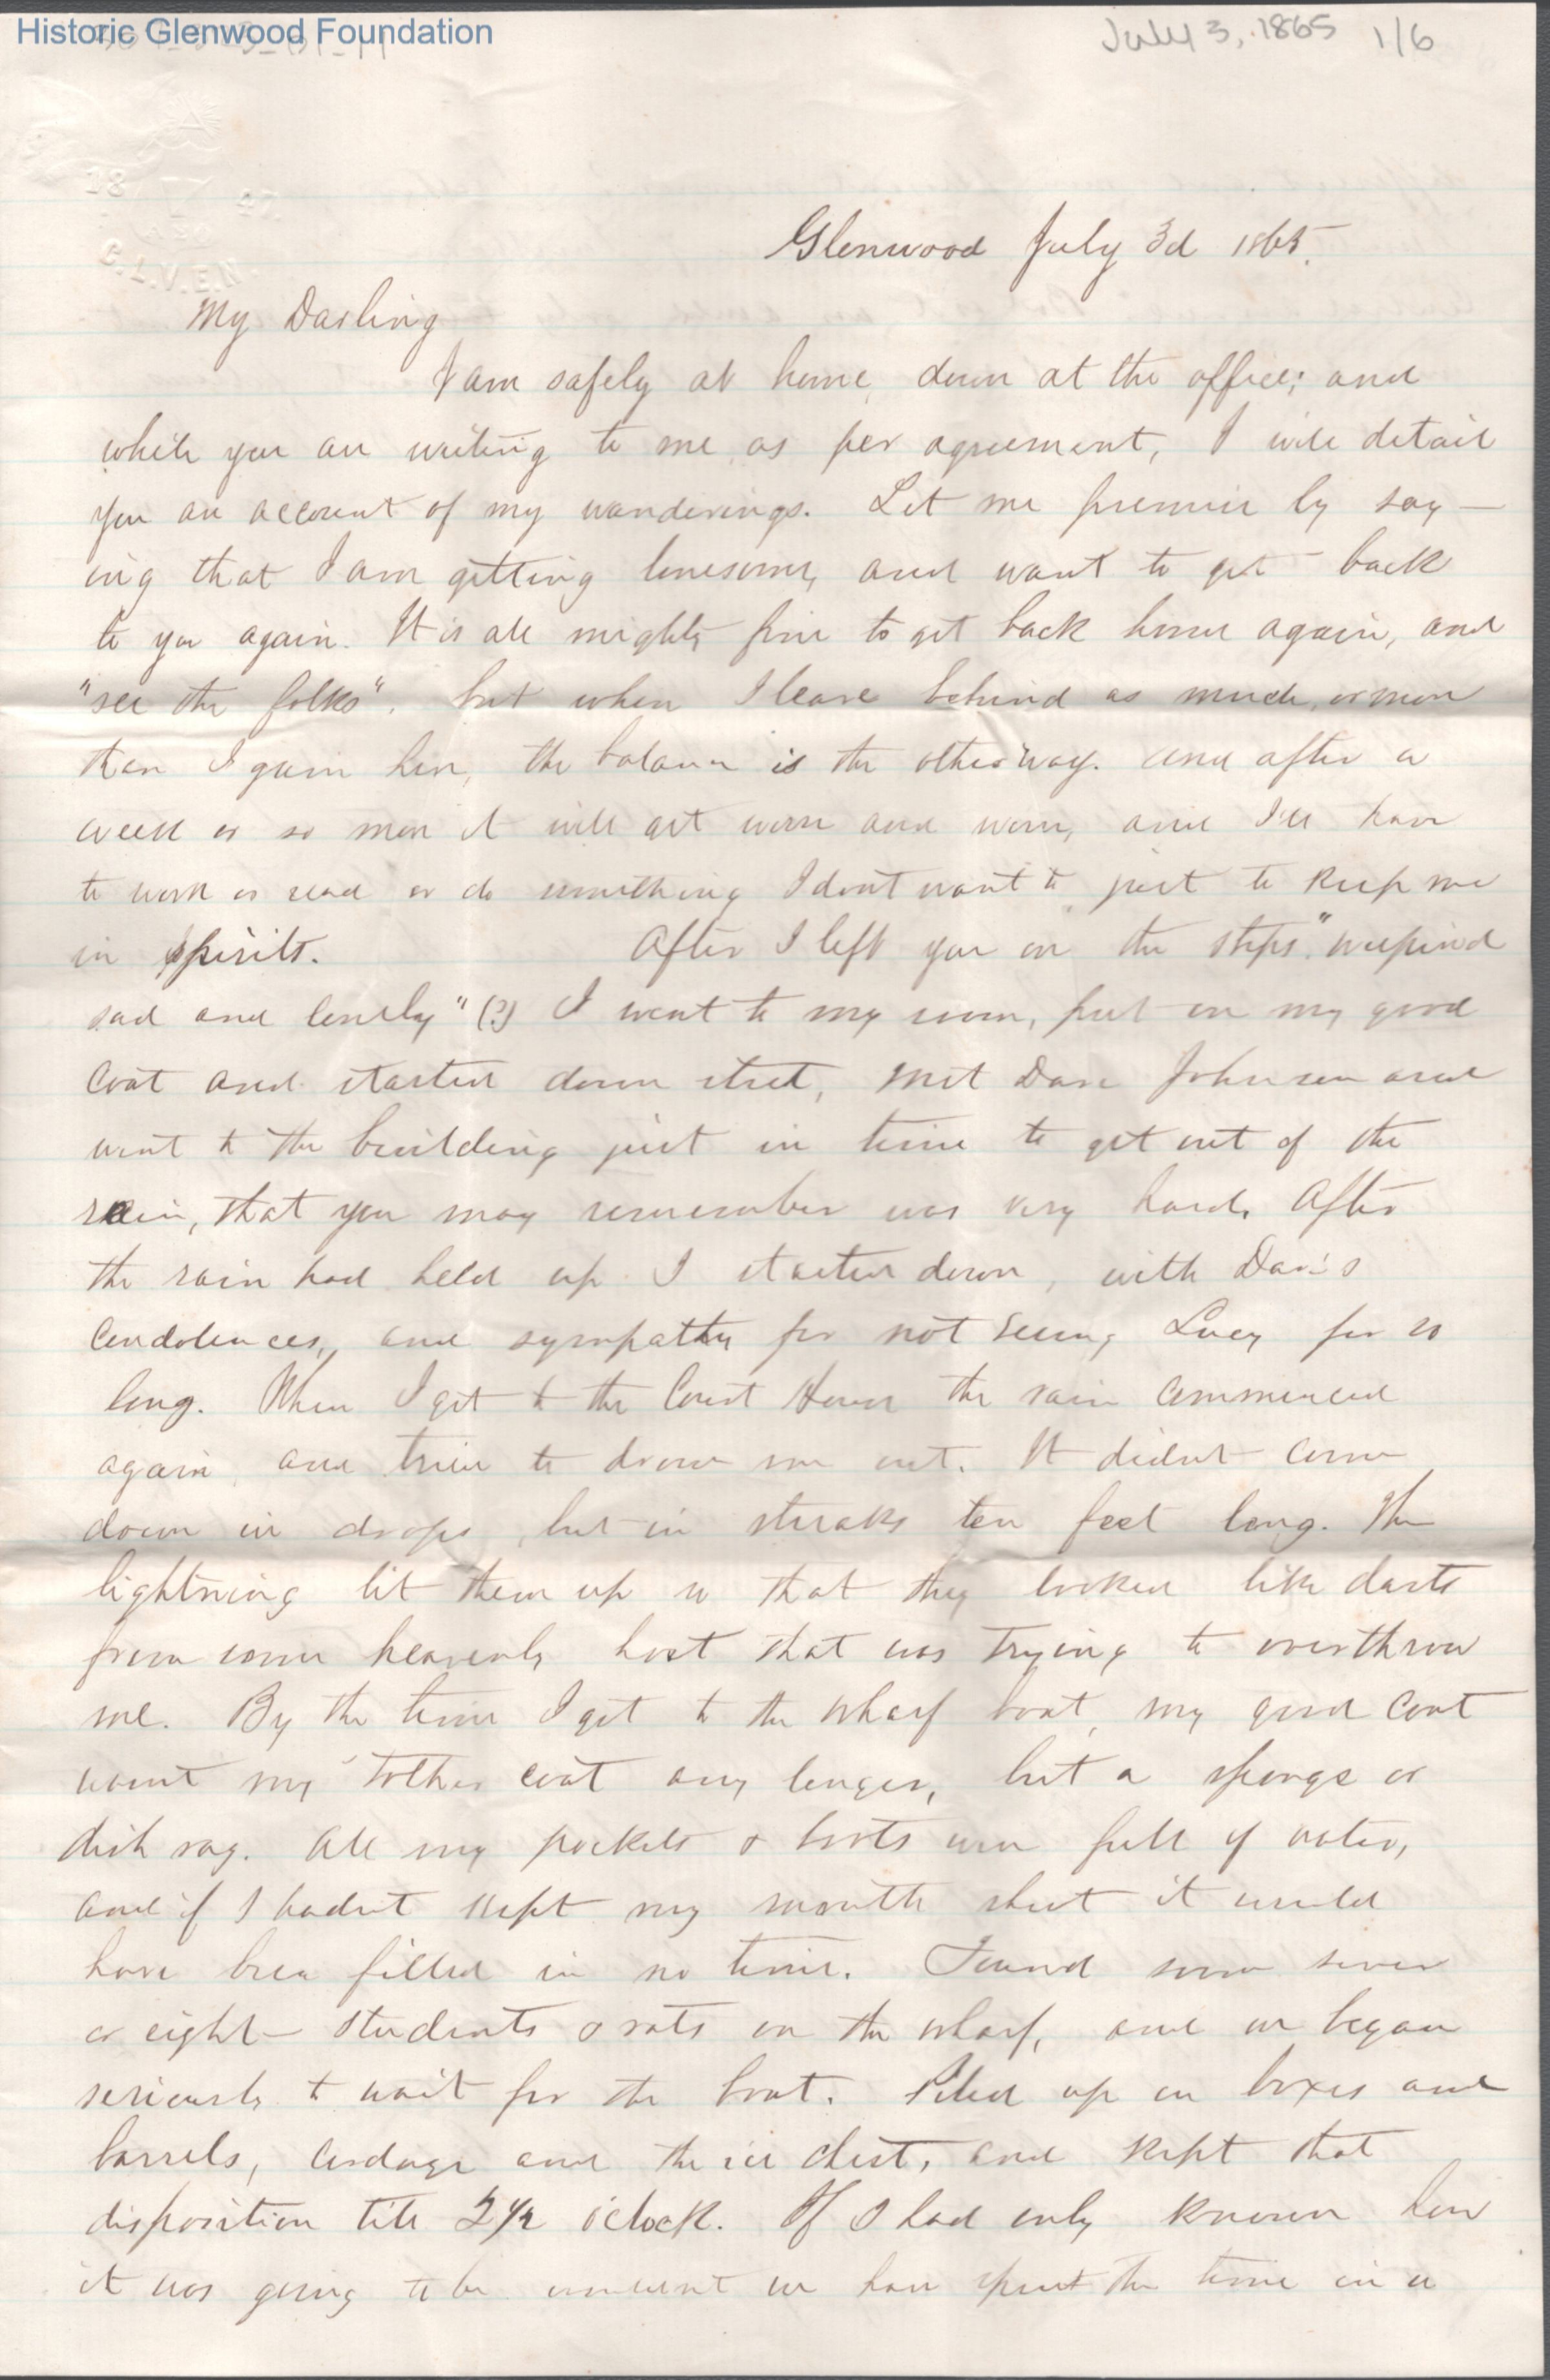 Historic Glenwood Foundation
July 3, 1865 1/6
Glenwood July 3d 1865.
My Darling
I am safely at home, down at the office; and
while you are writing to me as per agreement, I will detail
you an account of my wanderings. Let me premise by say-
ing that I am getting lonesome, and want to get back
to you again. It is all mighty fine to get back home again, and
"see the folks". but when I leave behind as much, or more
than I gain here, the balance is the other way. and after a
week or so more it will get worse and worse, and I'll have
to work or read or do something I dont want to just to keep me
in spirits. After I left you on the steps "weepin'd
sad and lonely" (?) I went to my room, put on my good
coat and started down street, met Dave Johnson and
went to the building just in time to get out of the
rain, that you may remember was very hard. After
the rain had held up I started down, with Dave's
condolences, and sympathy for not seeing Lucy for so
long. When I got to the Court House the rain commenced
again and tried to drown me out. It didnt come
down in drops, but in streaks ten feet long. The
lightning lit them up so that they looked like darts
from some heavenly host that was trying to overthrow
me. By the time I got to the wharf boat, my good coat
wasnt my 'tother coat any longer, but a sponge or
dish rag. All my pockets & boots were full of water,
and if I hadnt kept my mouth shut it would
have been filled in no time. Found some seven
or eight students & rats on the wharf, and we began
seriously to wait for the boat. Piled up on boxes and
barrels, cordage and the ice chest, and kept that
disposition till 2 1/2 o'clock. If I had only known how
it was going to be we have spent the time in a